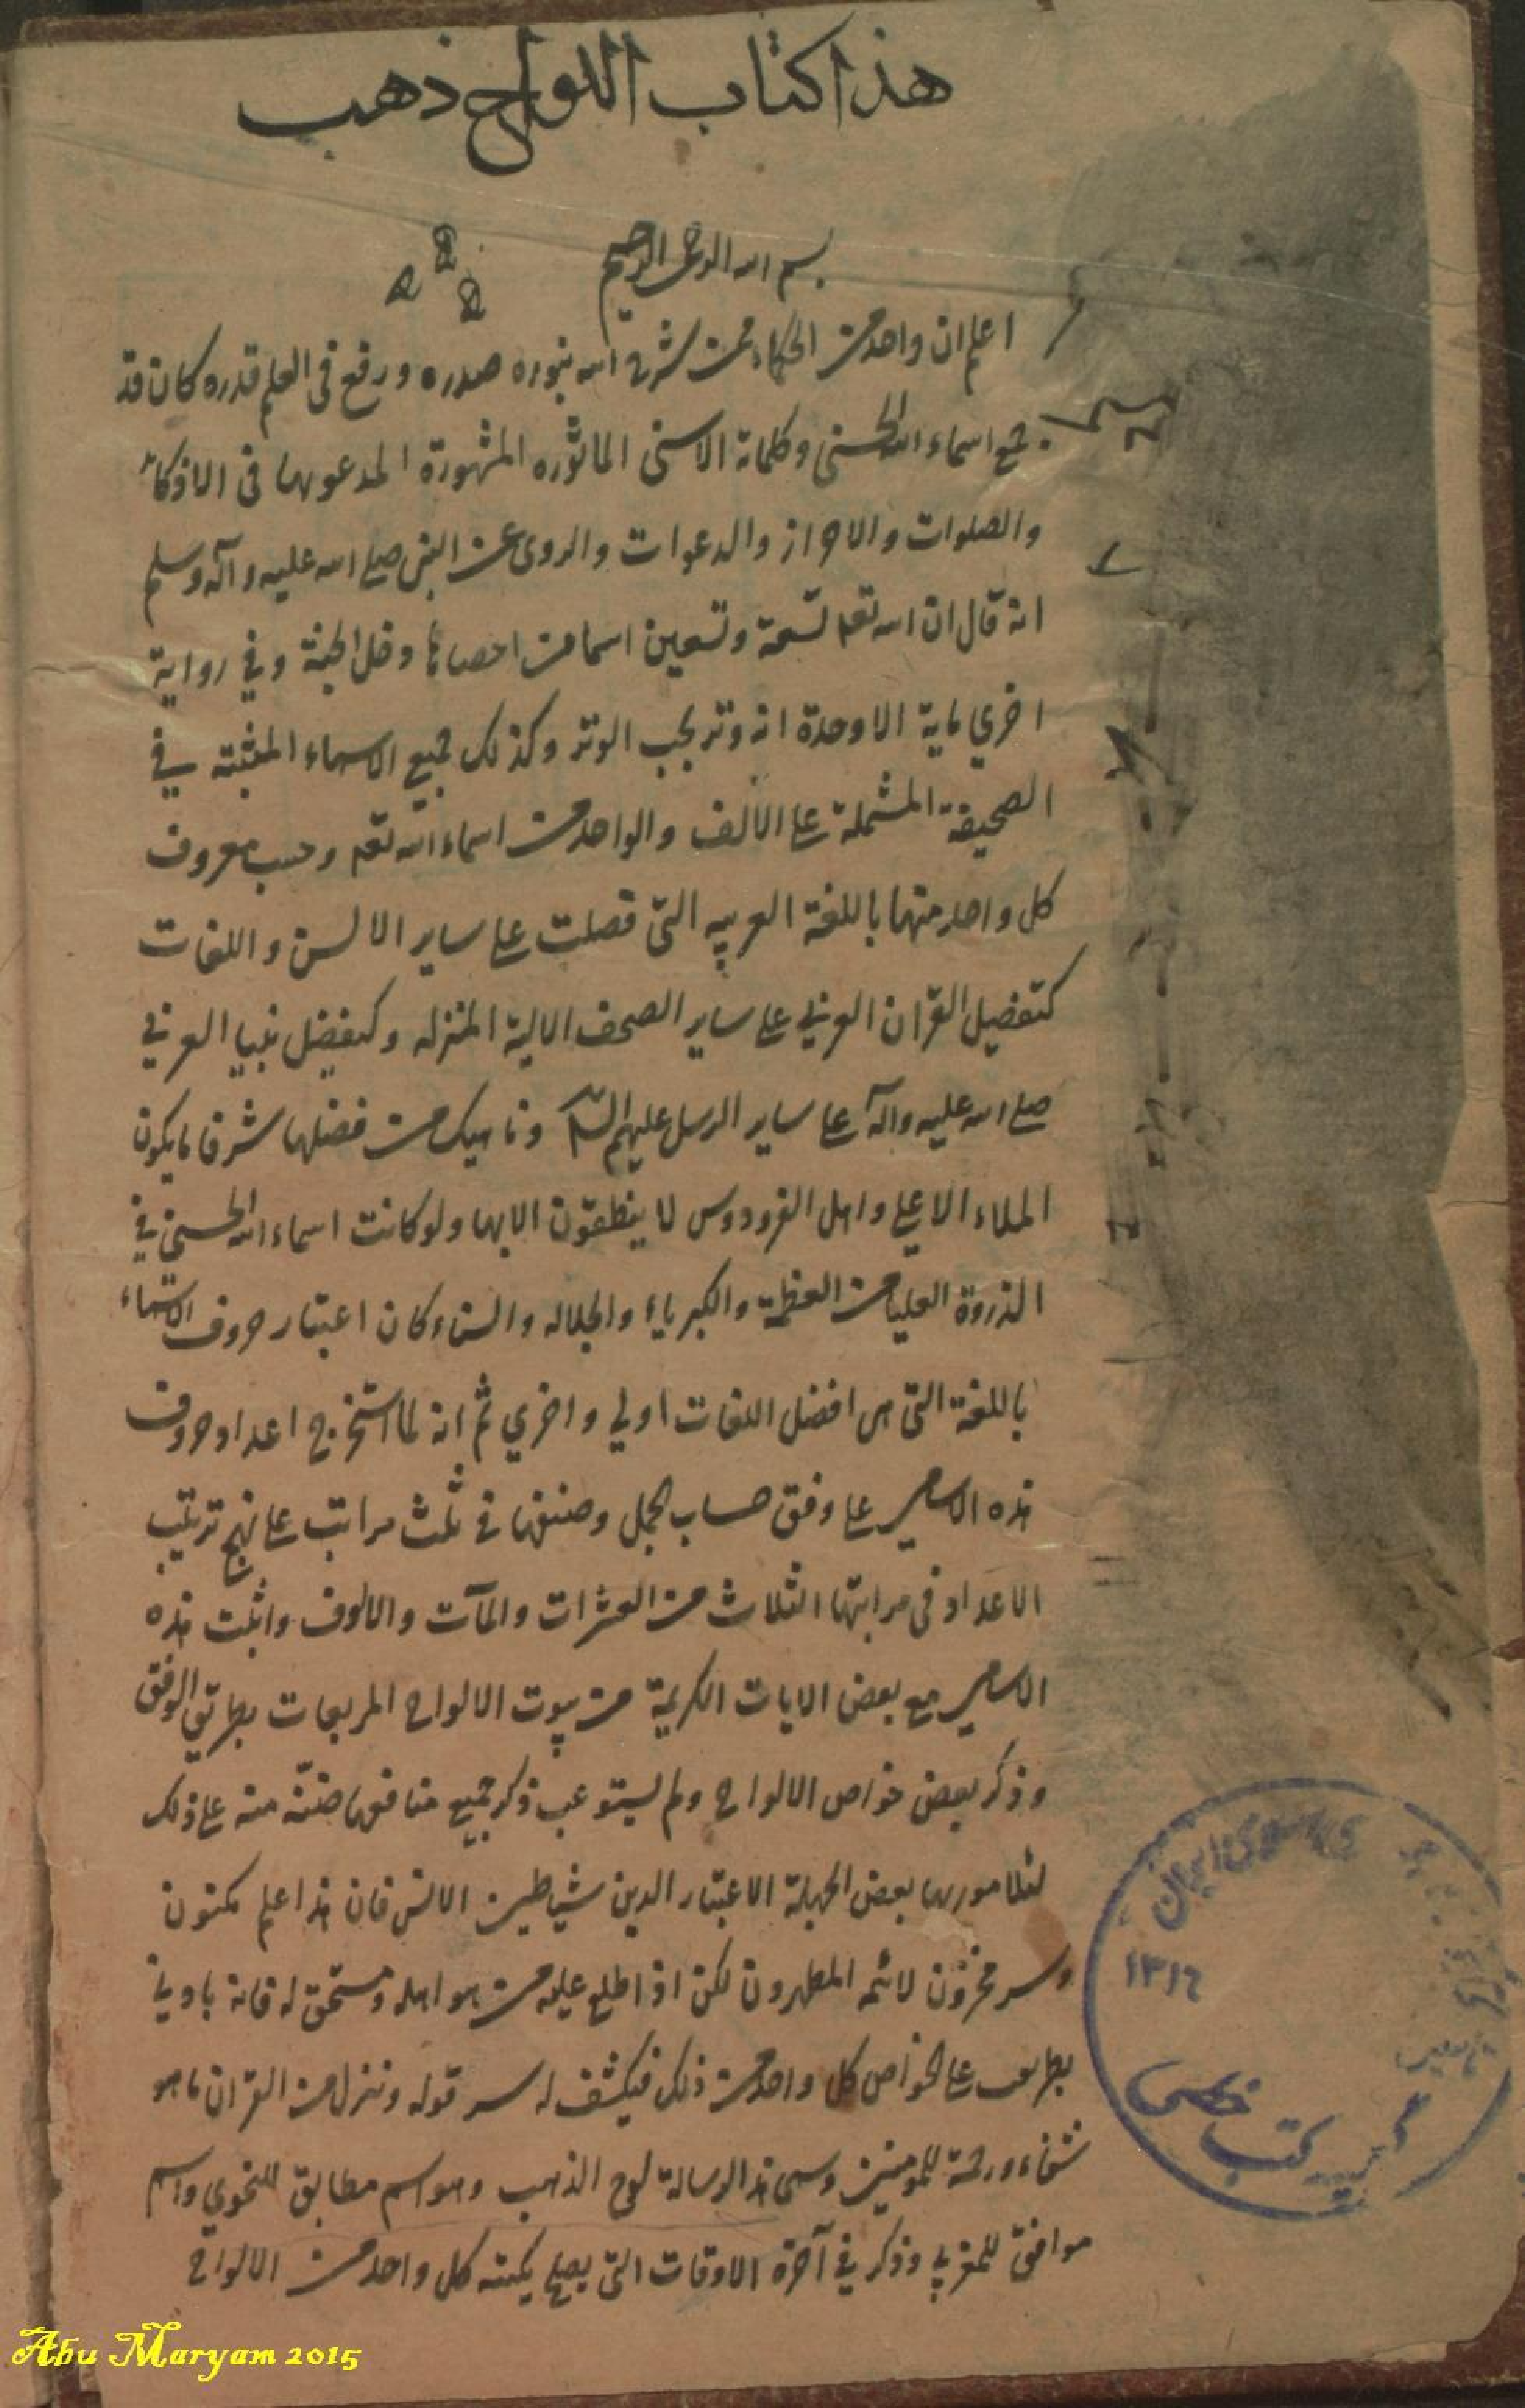 هذا كتاب اللواح ذهب
بسم الله الرحمن الرحيم
اعلم ان واحد من الحكماء ممن شرح الله بنوره صدره ورفع في العلم قدره كان قد
جمع اسماء الله الحسنى وكلماته الاسنى الماثوره المشهورة المدعو بها في الاذكار
والصلوات والاحراز والدعوات والمروى عن النبي صلى الله عليه وآله وسلم
انه قال ان الله تعه تسعة وتسعين اسما من احصاها دخل الجنة وفي رواية
اخري ماية الا وحدة انه وتر يحب الوتر وكذلك جميع الاسماء المثبته في
الصحيفة المشتملة على الالف والواحد من اسماء الله تعه وحسب معروف
كل واحد منها باللغة العربيه التي فضلت على ساير الالسن واللغات
كتفضيل القران العربي على ساير الصحف الالية المنزله وكتفضيل نبيا العربي
صلى الله عليه وآله على ساير الرسل عليهم السلام وناهيك من فضلها شرفا ما يكون
الملاء الاعلي واهل الفردوس لا ينطقون الا بها ولو كانت اسماء الله الحسنى في
الذروة العليا من العظمة والكبرياء والجلاله والسناء كان اعتبار حروف الاسماء
باللغة التي هي افضل اللغات اولي واخري ثم انه لما استخرج اعداد حروف
هذه الاسامي على وفق حساب الجمل وصنفها في ثلث مراتب على نهج ترتيب
الاعداد في مراتبها الثلاث من العشرات والمآت والالوف واثبت هذه
الاسامي مع بعض الايات الكريمة من بيوت الالواح المربعات بطريق الوفق
وذكر بعض خواص الالواح ولم يستوعب ذكر جميع منافعها ضنّة منه على ذلك
لئلا بعض الجهلة الاغبار الدين شياطين الانس فان هذا علم مكنون
وسر مخزون لا يمسه المطهرون لكن اذا اطلع عليه من هو اهله ومستحق له فانه
على الخواص كل واحد من ذلك فيكشف له سر قوله وننزل من القران ما هو
شفاء ورحمة للمومنين وسمى هذا الرسالة لوح الذهب وهو اسم مطابق للنحوي واسم
موافق للمغربي وذكر في آخره الاوقات التي يصلح يكتبه كل واحد من الالواح
ايران
۱۳۱۶
Abu Maryam 2015